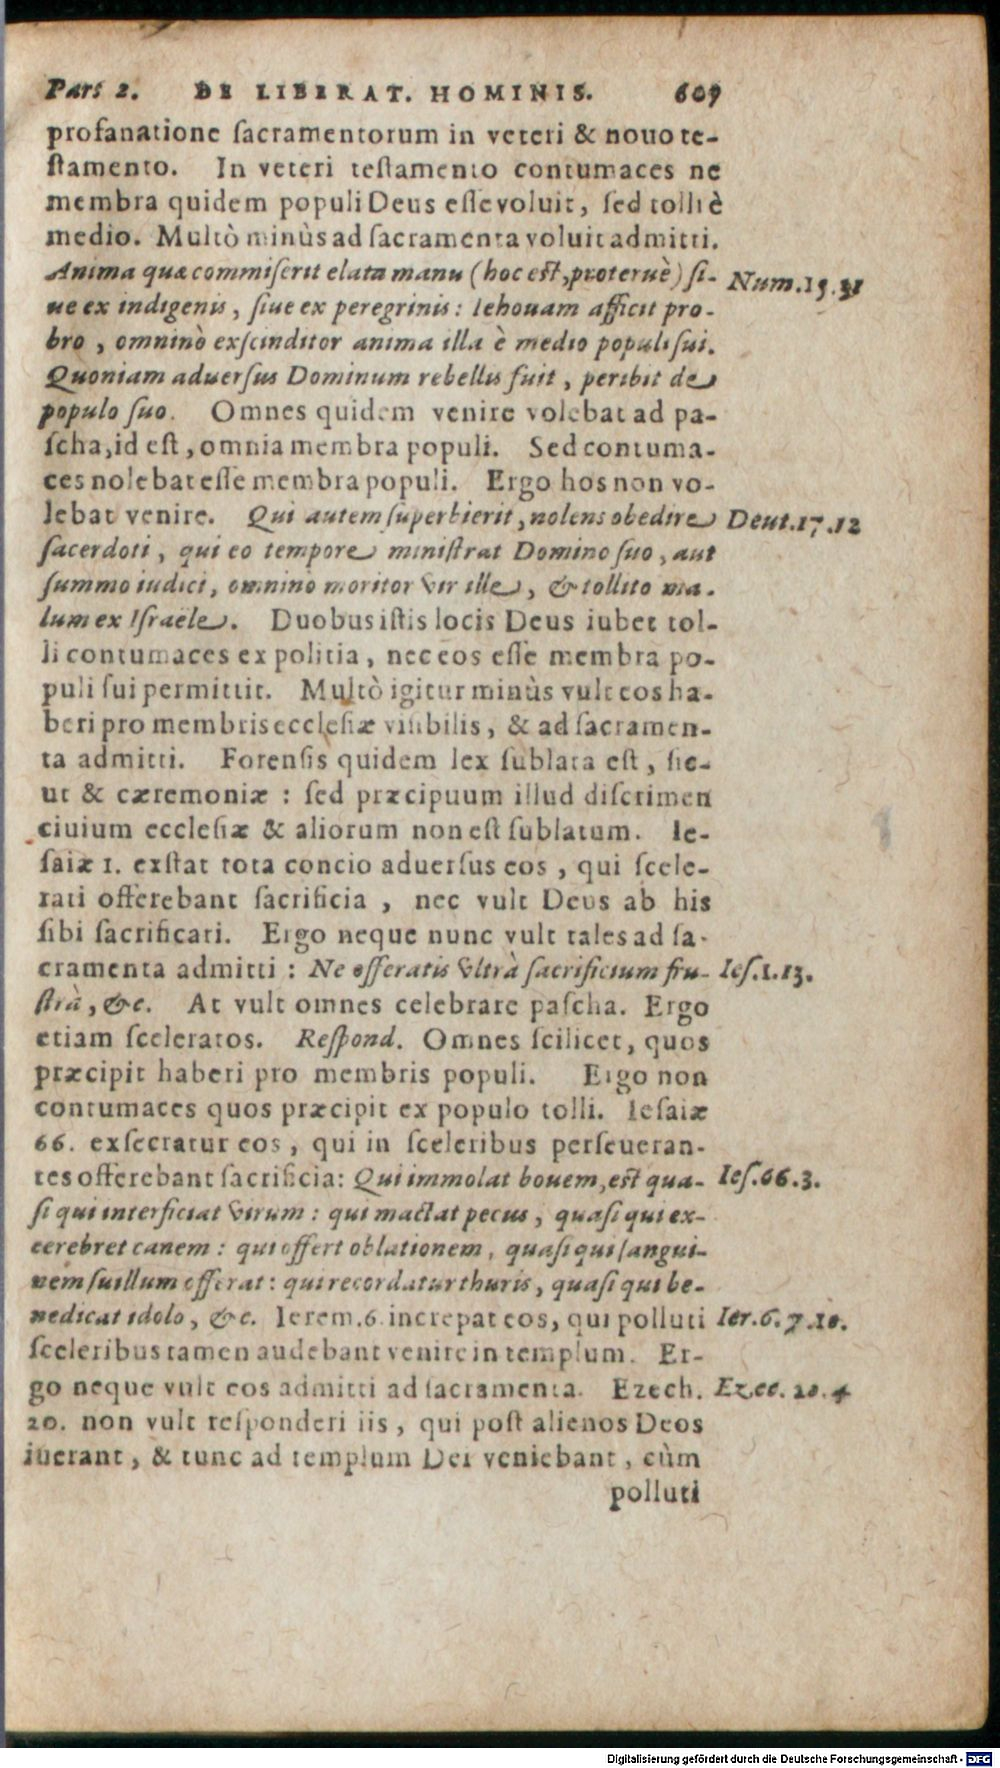 Part 2. DE LIBERAT. HOMINIS. 609
profanatione sacramentorum in veteri & nouo te-
stamento. In veteri testamento contumaces ne
membra quidem populi Deus esse voluit, sed tolli è
medio. Multò minùs ad sacramenta voluit admitti.
Anima quæ commiserit elata manu (hoc est, proteruè) si- Num.15.31
ue ex indigenis, siue ex peregrinis: Iehouam afficit pro-
bro, omninò exscinditor anima illa è medio populi sui.
Quoniam aduersus Dominum rebellis fuit, peribit de
populo suo. Omnes quidem venire volebat ad pa-
scha, id est, omnia membra populi. Sed contuma-
ces nolebat esse membra populi. Ergo hos non vo-
lebat venire. Qui autem superbierit, nolens obedire Deut.17.12
sacerdoti, qui eo tempore ministrat Domino suo, aut
summo iudici, omnino moritor vir ille, & tollito ma-
lum ex Israële. Duobus istis locis Deus iubet tol-
li contumaces ex politia, nec eos esse membra po-
puli sui permittit. Multò igitur minùs vult eos ha-
beri pro membris ecclesiæ visibilis, & ad sacramen-
ta admitti. Forensis quidem lex sublata est, sic-
ut & cæremoniæ: sed præcipuum illud discrimen
ciuium ecclesiæ & aliorum non est sublatum. Ie-
saiæ 1. exstat tota concio aduersus eos, qui scele-
rati offerebant sacrificia, nec vult Deus ab his
sibi sacrificari. Ergo neque nunc vult tales ad sa-
cramenta admitti: Ne offeratis vltrà sacrificium fru- Ies.1.13.
strà, &c. At vult omnes celebrare pascha. Ergo
etiam sceleratos. Respond. Omnes scilicet, quos
præcipit haberi pro membris populi. Ergo non
contumaces quos præcipit ex populo tolli. Iesaiæ
66. exsecratur eos, qui in sceleribus perseueran-
tes offerebant sacrificia: Qui immolat bouem, est qua- Ies.66.3.
si qui interficiat virum: qui mactat pecus, quasi qui ex-
cerebret canem: qui offert oblationem, quasi qui sangui-
nem suillum offerat: qui recordatur thuris, quasi qui be-
nedicat idolo, &c. Ierem.6. increpat eos, qui polluti Ier.6.7.10.
sceleribus tamen audebant venire in templum. Er-
go neque vult eos admitti ad sacramenta. Ezech. Ezec. 20.4
20. non vult responderi iis, qui post alienos Deos
iuerant, & tunc ad templum Dei veniebant, cùm
polluti
Digitalisierung gefördert durch die Deutsche Forschungsgemeinschaft - DFG